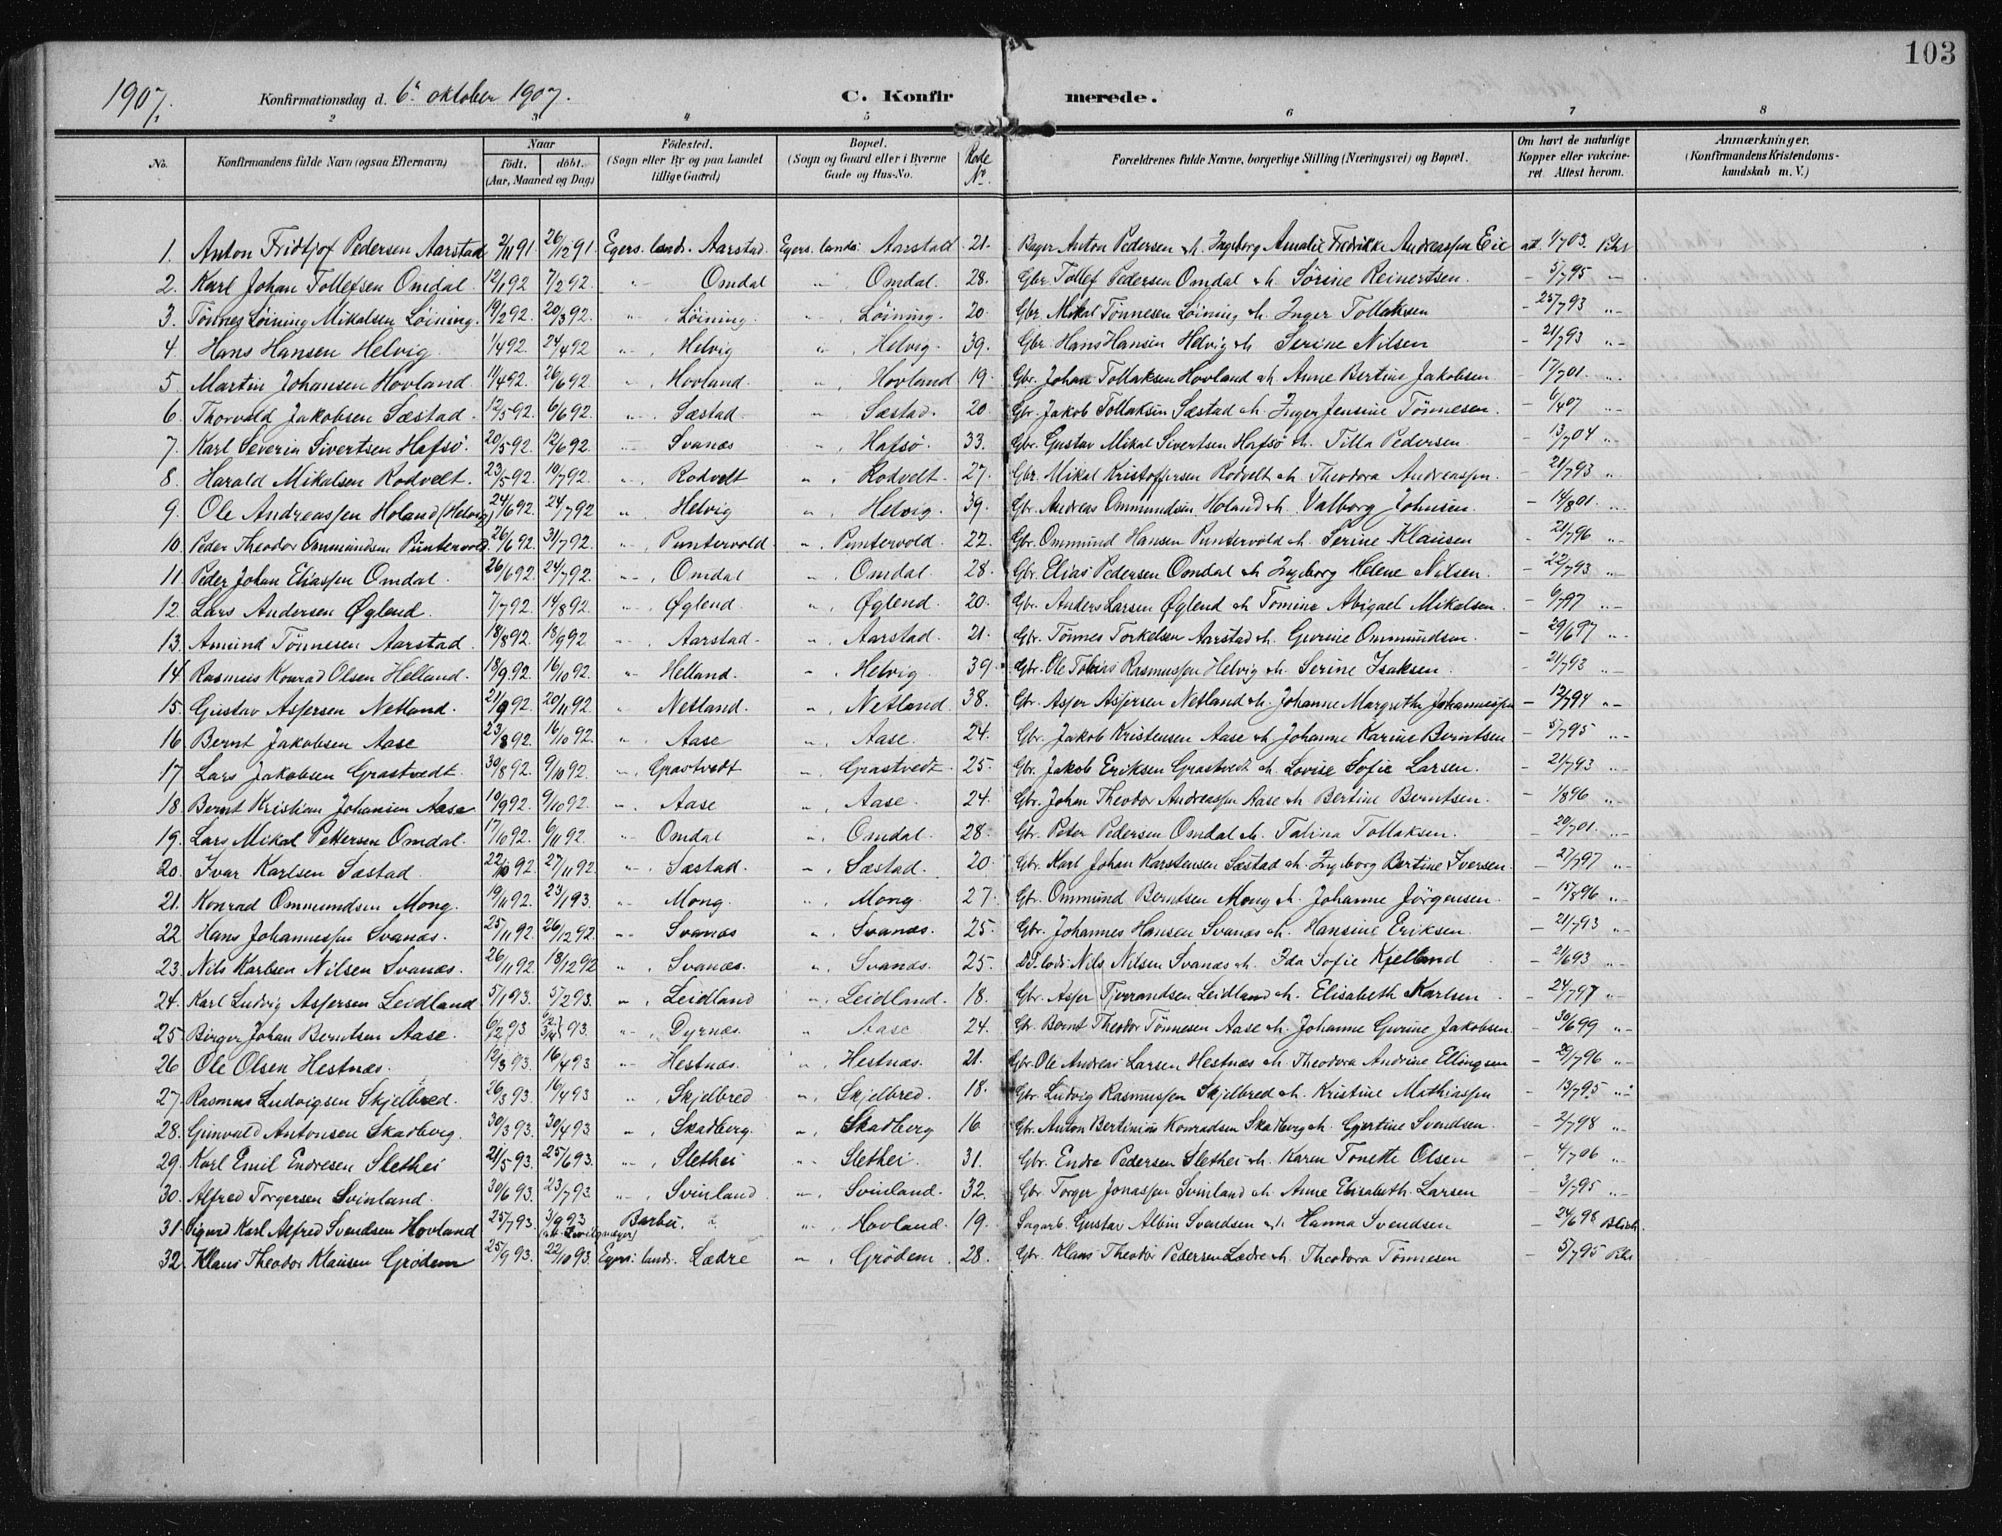 103
1907. Konfirmationsdag d. 6te oktober 1907. C. Konfirmerede.
1 2 3 4 5 6 7 8
No. Konfirmandens fulde Navn (ogsaa Efternavn) Naar født. døbt. (Aar, Maaned og Dag) Fødested. (Sogn eller By og paa Landet tillige Gaard) Bopæl. (Sogn og Gaard eller i Byerne Gade og Hus-No. Rode No. Forældrenes fulde Navne, borgerlige Stilling (Næringsvei) og Bopæl. Om havt de naturlige Kopper eller vakcineret. Attest herom. Anmærkninger. (Konfirmandens Kristendomskundskab m. V.)
1. Anton Fridtjof Pedersen Aarstad 2/11 91 26/12 91. Egers. lands. Aarstad. Egers. lands. Aarstad 21. Bager Anton Pedersen o.h. Ingeborg Amalie Fredrikke Andreassen Eie att. 1/7 03.
2. Karl Johan Tollefsen Omdal 12/1 92 7/2 92. " Omdal " Omdal. 28. Gbr. Tollef Pedersen Omdal o.h. Sørine Reinertsen. - 5/7 95 "
3. Tønnes Løining Mikalsen Løining. 19/2 92. 20/3 92. " Løining. " Løining. 20. Gbr. Mikal Tønnesen Løining o.h. Inger Tollaksen - 25/7 93 "
4. Hans Hansen Helvig. 1/4 92. 24/4 92 " Helvig " Helvig. 39. Gbr. Hans Hansen Helvig o.h. Serine Nilsen - 21/7 93 "
5. Martin Johansen Hovland 11/4 92. 26/6 92. " Hovland. " Hovland 19. Gbr. Johan Tollaksen Hovland o.h. Anne Bertine Jakobsen. - 17/7 01. "
6. Thorvald Jakobsen Sæstad. 12/5 92. 6/6 92. " Sæstad. " Sæstad. 20. Gbr. Jakob Tollaksen Sæstad o.h. Inger Jensine Tønnesen. - 6/4 07 "
7. Karl Severin Sivertsen Hafsø. 20/5 92. 12/6 92. " Svanæs " Hafsø. 33. Gbr. Gustav Mikal Sivertsen Hafsø o.h. Tilla Pedersen - 13/7 04 "
8. Harald Mikalsen Rodvelt. 23/5 92. 10/7 92. " Rodvelt " Rodvelt. 27. Gbr. Mikal Kristoffersen Rodvelt o.h. Theodora Andreassen. - 21/7 93 "
9. Ole Andreassen Holand (Helvig) 24/6 92. 24/7 92 " Helvig " Helvig. 39. Gbr. Andreas Ommundsen Holand o.h. Valborg Johnsen. - 14/8 01. "
10. Peder Theodor Ommundsen Puntervold. 26/6 92. 31/7 92. " Puntervold. " Puntervold. 22. Gbr. Ommund Hansen Puntervold o.h. Serine Klausen - 21/7 96 "
11. Peder Johan Eliassen Omdal. 26/6 92. 24/7 92. " Omdal " Omdal. 28. Gbr. Elias Pedersen Omdal o.h. Ingeborg Helene Nilsen. - 22/7 93. "
12. Lars Andersen Øglend. 7/7 92. 14/8 92. " Øglend " Øglend. 20. Gbr. Anders Larsen Øglend o.h. Tomine Abigael Mikalsen. - 6/7 97 "
13. Amund Tønnesen Aarstad. 18/8 92. 18/9 92. " Aarstad. " Aarstad. 21. Gbr. Tønnes Torkelsen Aarstad o.h. Gurine Ommundsen. - 29/6 97 "
14. Rasmus Konrad Olsen Helland. 18/9 92. 16/10 92. " Helland. " Helvig. 39. Gbr. Ole Tobias Rasmussen Helvig o.h. Serine Isaksen. - 21/7 93 "
15. Gustav Asjersen Netland. 21/9 92. 20/11 92. " Netland. " Netland 38. Gbr. Asjer Asjersen Netland o.h. Johanne Margrethe Johannessen - 12/7 94 "
16. Bernt Jakobsen Aase 23/8 92. 16/10 92. " Aase " Aase. 24. Gbr. Jakob Kristensen Aase o.h. Johanne Karine Berntsen - 5/7 95 "
17. Lars Jakobsen Grastvedt. 30/8 92. 9/10 92. " Grastvedt " Grastvedt. 25. Gbr. Jakob Eriksen Grastvedt o.h. Lovise Sofie Larsen. - 21/7 93 "
18. Bernt Kristian Johansen Aase. 10/9 92. 9/10 92. " Aase " Aase. 24. Gbr. Johan Theodor Andreassen Aase o.h. Bertine Berntsen. - 1/8 96 "
19. Lars Mikal Pettersen Omdal. 17/10 92. 6/11 92. " Omdal " Omdal. 28. Gbr. Peter Pedersen Omdal o.h. Talina Tollaksen. - 20/7 01. "
20. Ivar Karlsen Sæstad. 22/10 92. 27/11 92. " Sæstad. " Sæstad. 20. Gbr. Karl Johan Karstensen Sæstad o.h. Ingeborg Bertine Iversen. - 27/7 97 "
21. Konrad Ommundsen Mong. 19/11 92. 23/1 93. " Mong. " Mong. 27. Gbr. Ommund Berntsen Mong o.h. Johanne Jörgensen. - 15/8 96 "
22. Hans Johannessen Svanæs. 25/11 92. 26/12 92. " Svanæs " Svanæs. 25. Gbr. Johannes Hansen Svanæs o.h. Hansine Eriksen. - 21/7 93 "
23. Nils Karlsen Nilsen Svanæs. 26/11 92. 18/12 92 " Svanæs. " Svanæs. 25. Nils Nilsen Svanæs o.h. Ida Sofie Kjelland - 21/6 93 "
24. Karl Ludvig Asjersen Leidland 5/1 93. 5/2 93. " Leidland " Leidland. 18. Gbr. Asjer Tjerandsen Leidland o.h. Elisabeth Karlsen - 24/7 97 "
25. Birger Johan Berntsen Aase. 6/2 93 93. " Dyrnæs. " Aase 24. Gbr. Bernt Theodor Tønnesen Aase o.h. Johanne Gurine Jakobsen. - 30/6 99 "
26. Ole Olsen Hestnæs. 12/3 93. 16/4 93 " Hestnæs. " Hestnæs. 21. Gbr. Ole Andreas Larsen Hestnæs o.h. Theodora Andrine Ellingsen - 29/7 96 "
27. Rasmus Ludvigsen Skjelbred. 26/3 93. 16/4 93 " Skjelbred " Skjelbred. 18. Gbr. Ludvig Rasmussen Skjelbred o.h. Kristine Mathiassen - 13/7 95 "
28. Ginvald Antonsen Skadberg. 30/3 93. 30/4 93 " Skadberg. " Skadberg 16 Gbr. Anton Bertinius Konradsen Skadberg o.h. Gjertine Svendsen. - 2/7 98 "
29. Karl Emil Endresen Slethei 21/5 93. 25/6 93. " Slethei " Slethei. 31. Gbr. Endre Pedersen Slethei o.h. Karen Tonette Olsen - 4/7 06 "
30. Alfred Torgersen Svinland. 30/6 93. 23/7 93 " Svinland " Svinland. 32. Gbr. Torger Jonassen Svinland o.h. Anne Elisabeth. Larsen - 3/7 95 "
31. Sigurd Karl Alfred Svendsen Hovland 25/7 93. 3/9 93 Barbu. " Hovland. 19. Sagarb. Gustav Albin Svendsen o.h. Hanna Svendsen - 24/6 98
32. Klaus Theodor Klausen Grødem 25/9 93. 22/10 93. Egers. lands. Lædre " Grødem. 28. Gbr. Klaus Theodor Pedersen Lædre o.h. Theodora Tønnesen - 5/7 95